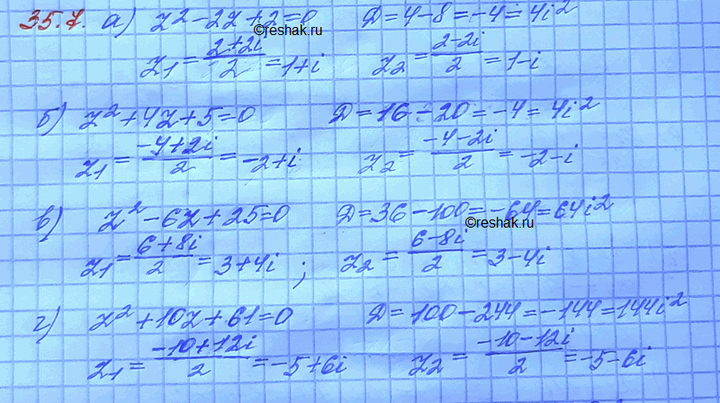 35.7. а) z² - 2z + 2 = 0 D = 4 - 8 = -4 = 4i²
©reshak.ru
z₁ = (2+2i)/2 = 1+i z₂ = (2-2i)/2 = 1-i
б) z² + 4z + 5 = 0 D = 16 - 20 = -4 = 4i²
z₁ = (-4+2i)/2 = -2+i z₂ = (-4-2i)/2 = -2-i
в) z² - 6z + 25 = 0 D = 36 - 100 = -64 = 64i²
©reshak.ru
z₁ = (6+8i)/2 = 3+4i ; z₂ = (6-8i)/2 = 3-4i
г) z² + 10z + 61 = 0 D = 100 - 244 = -144 = 144i²
z₁ = (-10+12i)/2 = -5+6i z₂ = (-10-12i)/2 = -5-6i